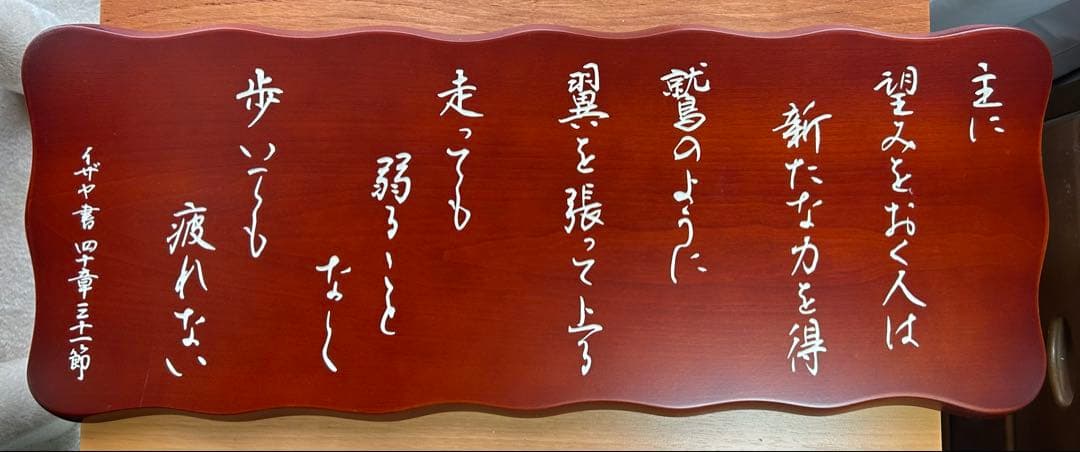 主に
望みをおく人は
新たな力を得
鷲のように
翼を張って上る
走っても
弱ること
なく
歩いても
疲れない
イザヤ書四十章三十一節